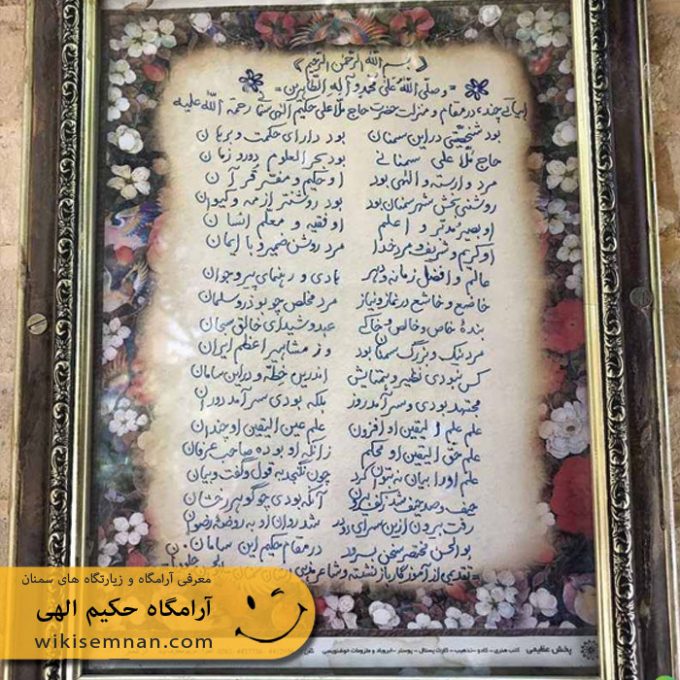 ﴿ بسم الله الرحمن الرحیم ﴾
= وصلی الله علی محمد و آله الطاهرین =
ابیاتی چند در مقام و منزلت حضرت حاج ملا علی حکیم الهی سمنانی رحمة الله علیه
بود شخصیتی در این سمنان بود دارای حکمت و برهان
حاج ملا علی سمنانی بود بحر العلوم دور و زمان
مرد وارسته و الهی بود او حکیم و مفسر قرآن
روشنی بخش شهر سمنان بود بود روشنتر از مه و کیوان
او بصیر و مدبر و اعلم او فقیه و معلم انسان
او کریم و شریف و مرد خدا مرد روشن ضمیر و با ایمان
عالم و افضل زمانه و دهر هادی و رهنمای پیر و جوان
خاضع و خاشع در نماز و نیاز مرد مخلص چو بوذر و سلمان
بندهٔ خاص و خالص و خاکی عبد و شیدای خالق سبحان
مرد نیک و بزرگ سمنان بود وز مشاهیر اعظم ایران
کس نبودی نظیر و همتایش اندرین خطه و در این سامان
مجتهد بودی و سرآمد روز بلکه بودی سرآمد دوران
علم علم و الیقین او افزون علم عین الیقین او چندان
علم حق الیقین او محکم زانکه او بوده صاحب عرفان
علم او را بیان نه بتوان کرد چون نگنجد به قول و گفت و بیان
حیف و صد حیف شد ز کف بیرون آنکه بودی چو گوهر رخشان
رفت بیرون از این سرای دو در شد روان او به روضهٔ رضوان
بوالحسن مختصر سخن بسرود در مقام حکیم این سامان
= تقدیمی از آموزگار بازنشسته و شاعر
معرفی آرامگاه و زیارتگاه های سمنان
آرامگاه حکیم الهی
wikisemnan.com
پخش عظیمی کتب هنری - کادو - تذهیب - کارت پستال - پوستر - و ملزومات خوشنویسی